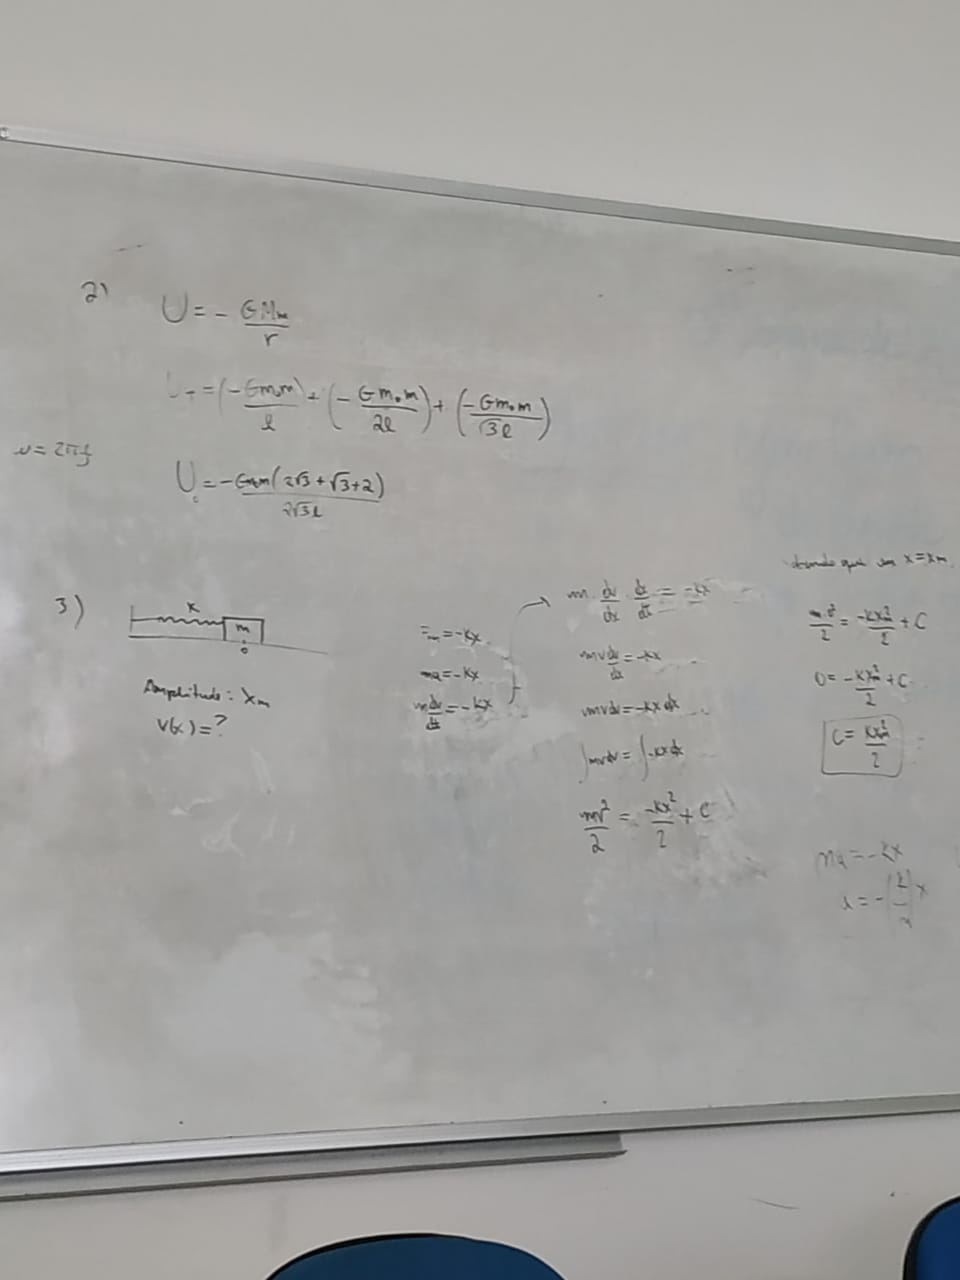 2)
U = - GMm/r
= (-Gm₀m/l) + (-Gm₀m/2l) + (-Gm₀m/√3l)
= 2πf
U₀ = -Gm₀m(2√3+√3+2)/2√3l
3)
K
m
0
Amplitude: xₘ
V(x)=?
= -Kx
ma = -Kx
m dv/dt = -Kx
m dv/dx · dx/dt = -Kx
mv dv/dx = -Kx
mvdv = -Kx dx
∫mvdv = ∫-Kx dx
mv²/2 = -Kx²/2 + C
que em x = xₘ
mv²/2 = -Kxₘ²/2 + C
0 = -Kxₘ²/2 + C
C = Kxₘ²/2
ma = -Kx